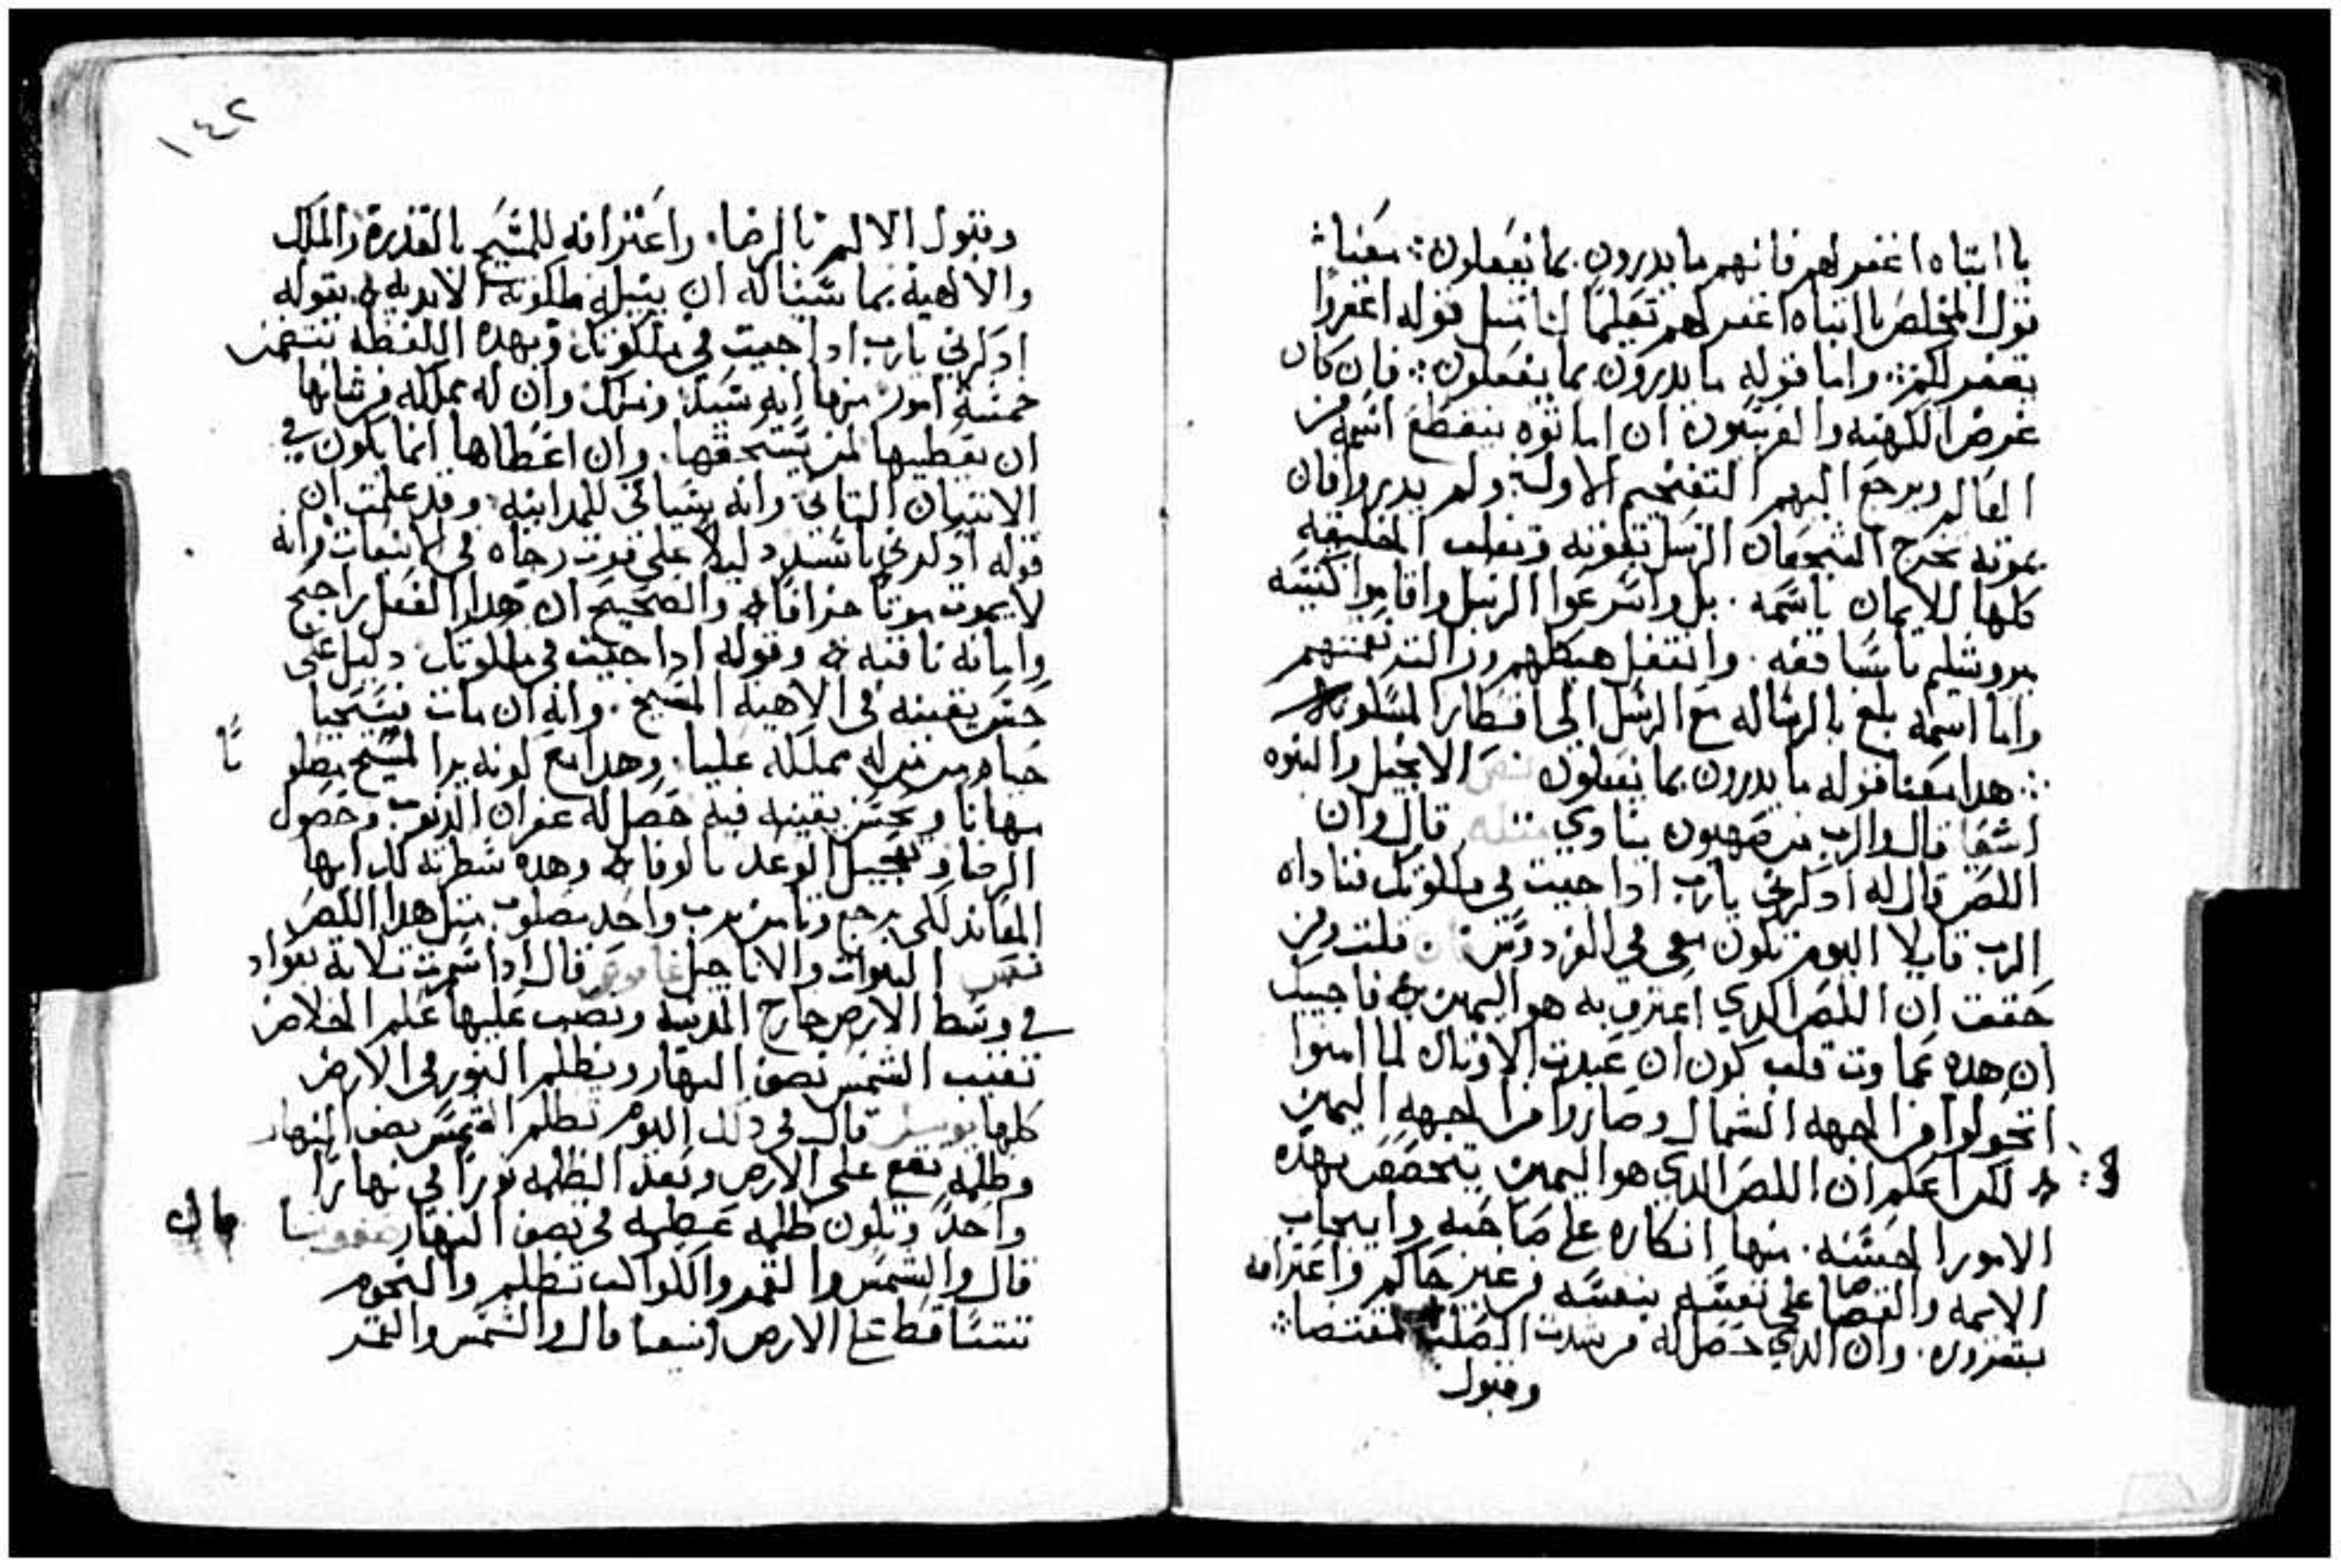 يا ابتاه اغفر لهم فانهم ما يدرون بما يفعلون ܀ معنا ܀
قول المخلص يا ابتاه اغفر لهم تعليمًا لنا مثل قوله اغفروا
يغفر لكم ܀ واما قوله ما يدرون بما يفعلون ܀ فان كان
غرض الكهنه والفريسيون ان اماتوه ينقطع اسمه من
العالم ويرجع اليهم التفخيم الاول ولم يدروا فان
بموته تخرج الرسل وتقلب الخليقه
كلها للايمان باسمه . بل واسرعوا الرسل واقاموا كنيسه
يروشليم باساقفه . وانتقل هيكلهم
واما اسمه بلغ بالرساله مع الرسل الي اقطار المسكونه
܀ هدا معنا قوله ما يدرون بما يفعلون نص الانجيل والنبوه
اشعيا قال والرب من صهيون ينادي مثله قال وان
اللص قال له ادكرني يارب ادا جيت في ملكوتك فناداه
الرب قايلا اليوم تكون معي في الفردوس . قلت ومن
حققت ان اللص الدي اعترف به هو اليمين فاجيبك
ان هده عادت قلب كون ان عبدت الاوثان لما امنوا
اتحولوا من الجهه الشمال وصاروا من الجهه اليمين
لكن اعلم ان اللص الدي هو اليمين يتخصص بهده
الامور الحسنه . منها انكاره على صاحبه وايجاب
الايمه والقصاص على نفسه بنفسه من غير حاكم واعترافه
وان الدي حصل له من شدت الصلب
وقبول
١٤٢
وقبول الالم بالرضا . واعترافه للمسيح بالقدره والملك
والالهيه بما ساله ان ينيله ملكوته الابديه بقوله
ادكرني يارب ادا جيت في ملكوتك وبهده اللفظه تتضمن
خمسة امور منها انه سيد وملك وان له مملكه من شانها
ان يعطيها لمن يستحقها . وان اعطاها انما يكون في
الاتيان التاني وانه سياتي للمداينه وقد علمت ان
قوله ادكرني يا سيد دليلا على قوت رجاه في الانبعات وانه
لا يموت موتا جزافا والصحيح ان هدا الفعل راجح
وامانه تاقبه وقوله ادا جيت في ملكوتك دليل على
حسن يقينه في الاهية المسيح . وانه ان مات فسيحيا
حياه مملكه عليا . وهدا مع كونه يرا المسيح مصلو
بًا
مهانا وبحسن يقينه فيه حصل له غفران الدنوب وحصول
الرضا وتعجيل الوعد بالوفا وهده سطرته لك ايها
المعاند لكي ترجع وتامن برب واحد مصلوب متل هدا اللص
نص النبوات والاناجيل قال ادا سمرت تلاتة
في وسط الارض خارج المدينه ونصب عليها علم الخلاص
تغيب الشمس نصف النهار ويظلم النور في الارض
كلها قال في دلك اليوم تظلم الشمس نصف النهار
وظلمه تقع على الارض وبعد الظلمه نورا في نهارا
واحد وتكون ظلمه عظيمه في نصف النهار
قال
قال والشمس والقمر والكواكب تظلم والنجوم
تتساقط على الارض اشعيا قال والشمس والقمر